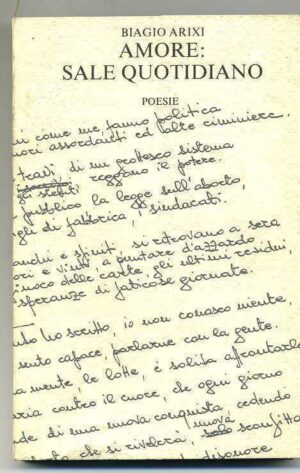 BIAGIO ARIXI
AMORE:
SALE QUOTIDIANO
POESIE
come me, fanno politica
assordanti ed alte ciminiere.
di un grottesco sistema
reggono il potere.
pubblico la legge sull'aborto,
di fabbrica, i sindacati.
e spiriti, si ritrovano a sera
e vinti, a puntare d'azzardo
delle carte, gli ultimi residui,
speranze di faticose giornate.
ho scritto, io non conosco niente,
sento capace, parlarne con la gente.
mente, le lotte, è solita affrontarle
contro il cuore, che ogni giorno
di una nuova conquista, cedendo
nuova
che si rivelerà, sconfitta